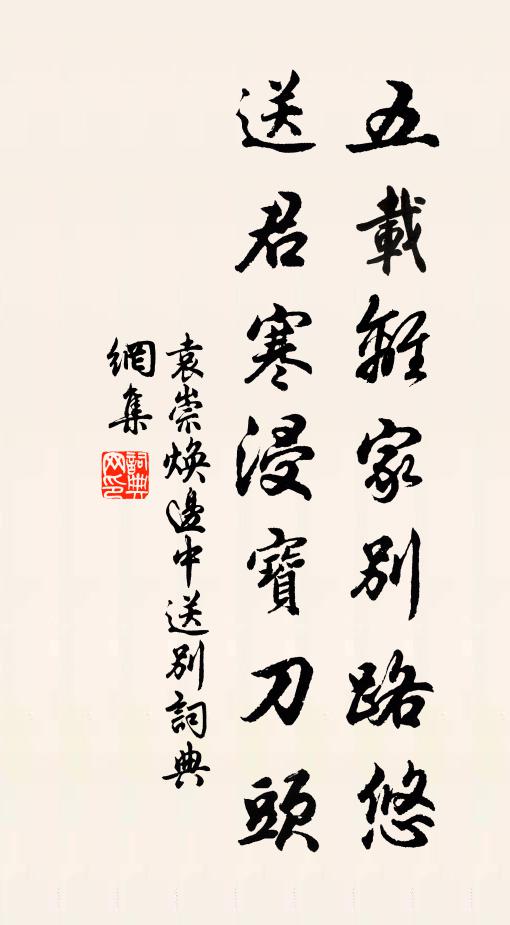 五載離家別路悠
送君寒浸寶刀頭
袁崇煥邊中送別詞典
網集
詞典網印